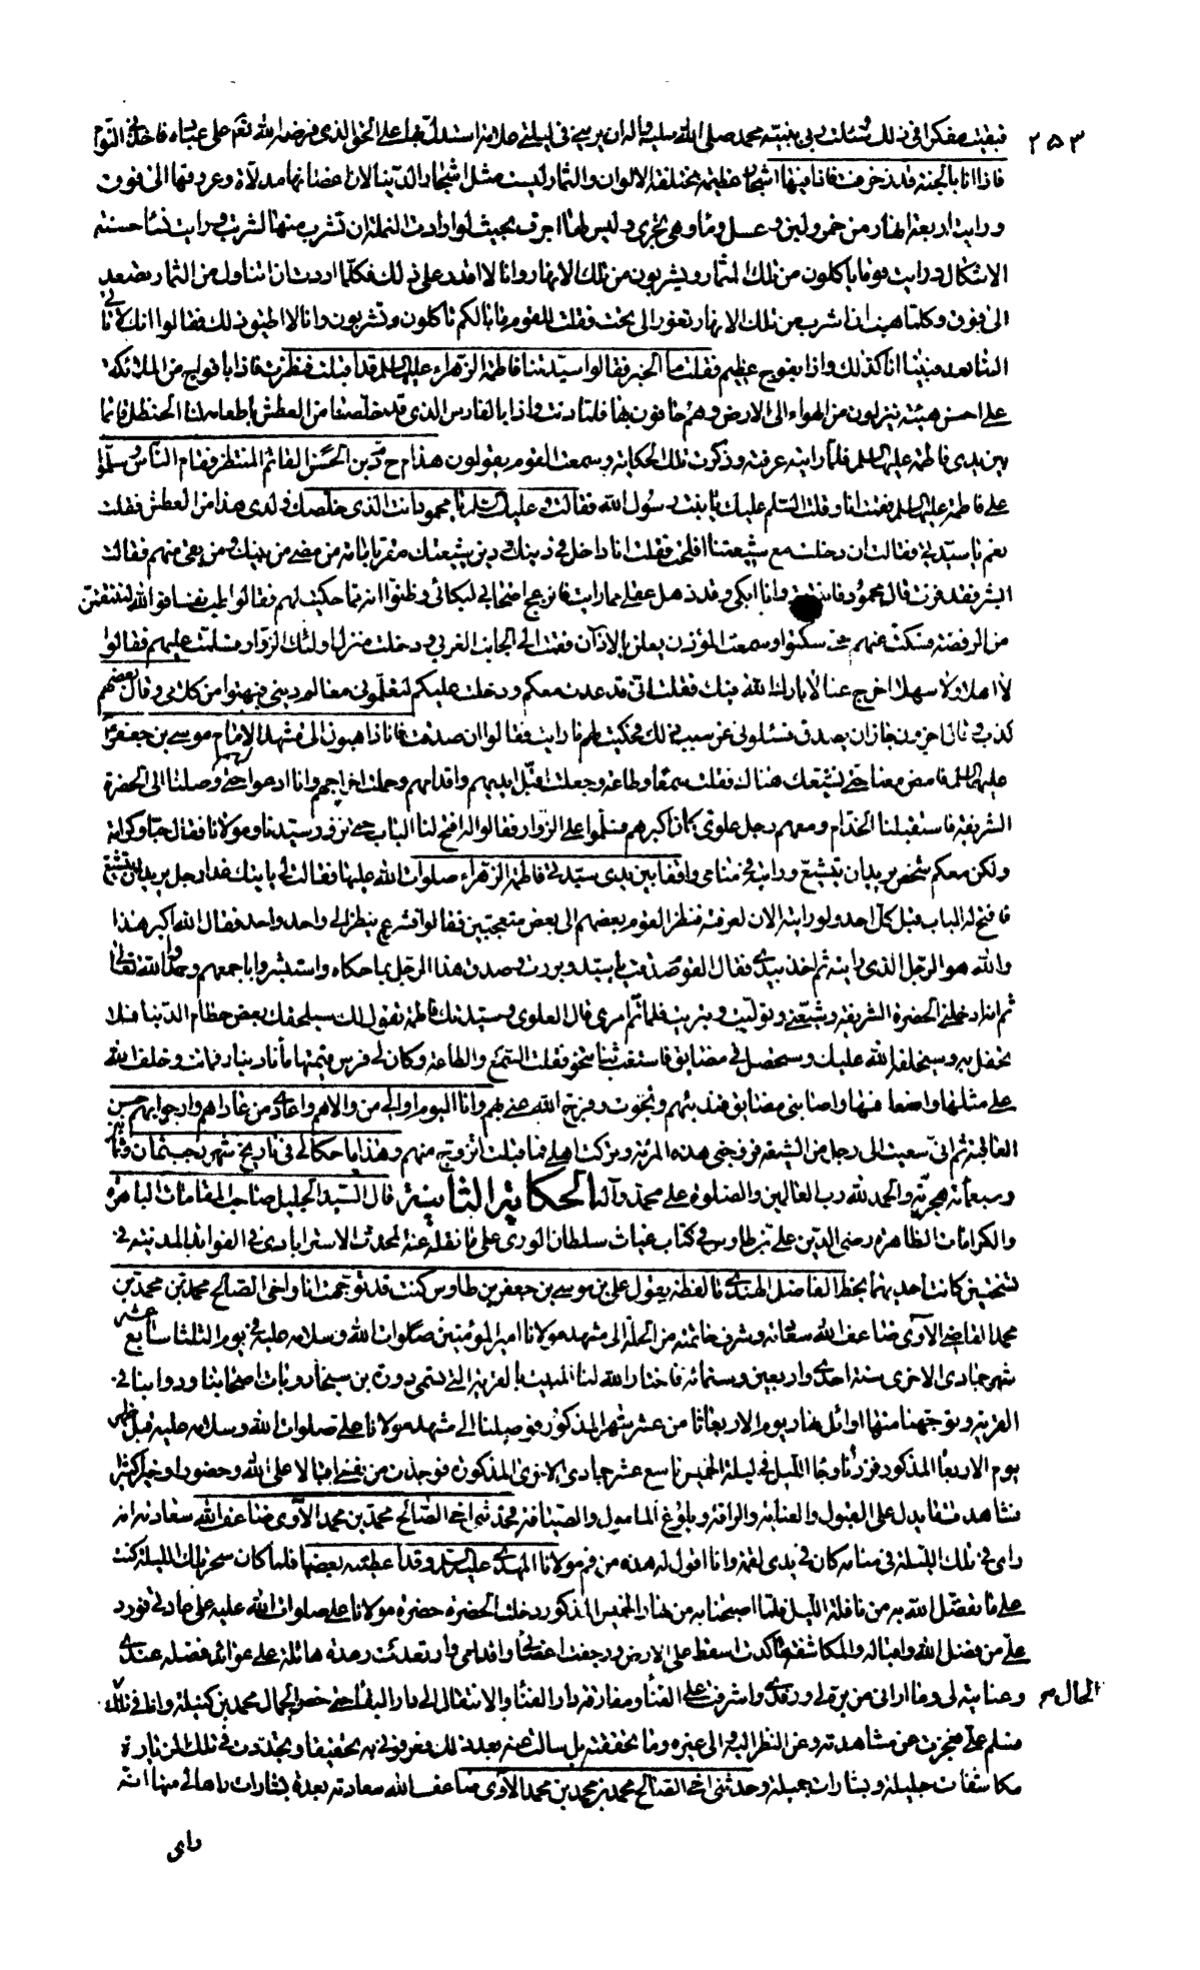 ٢٥٣
فبقيت مفكرا في ذلك وسئلت ربي بنبيه محمد صلى الله عليه وآله ان يريني في ليلتي علامة استدل بها على الحق الذي فرضه الله تعالى على عباده فاخذني النوم
فاذا انا بالجنة قد زخرفت فاذا فيها اشجار عظيمة مختلفة الالوان والثمار ليست مثل اشجار الدنيا لان اغصانها مدلاة وعروقها الى فوق
ورايت اربعة انهار من خمر ولبن وعسل وماء وهي تجري وليس لها جرف بحيث لو ارادت النملة ان تشرب منها لشربت ورايت نساء حسنة
الاشكال ورايت قوما ياكلون من تلك الثمار ويشربون من تلك الانهار وانا لا اقدر على ذلك فكلما اردت ان اتناول من الثمار تصعد
الى فوق وكلما هممت ان اشرب من تلك الانهار تغور الى تحت فقلت للقوم ما بالكم تاكلون وتشربون وانا لا اطيق ذلك فقالوا انك لا تاتي
الينا بعد فبينا انا كذلك واذا بفوج عظيم فقلت ما الخبر فقالوا سيدتنا فاطمة الزهراء عليها السلم قد اقبلت فنظرت فاذا بافواج من الملائكة
على احسن هيئة ينزلون من الهواء الى الارض وهم حافون بها فلما دنت واذا بالفارس الذي قد خلصنا من العطش باطعامه لنا الحنظل قائما
بين يدي فاطمة عليها السلم فلما رايته عرفته وذكرت تلك الحكاية وسمعت القوم يقولون هذا م ح م د بن الحسن القائم المنتظر فقام الناس وسلموا
على فاطمة عليها السلم فقمت انا وقلت السلم عليك يا بنت رسول الله فقالت وعليك السلم يا محمود انت الذي خلصك ولدي هذا من العطش فقلت
نعم يا سيدتي فقالت ان دخلت مع شيعتنا افلحت فقلت انا داخل في دينك ودين شيعتك مقر بامامة من مضى من بنيك ومن بقي منهم فقالت
ابشر فقد فزت قال محمود فانتبهت وانا ابكي وقد ذهل عقلي مما رايت فانزعج اصحابي لبكائي وظنوا انه مما حكيت لهم فقالوا طب نفسا فوالله لننتقمن
من الرفضة فسكت عنهم حتى سكتوا وسمعت المؤذن يعلن بالاذان فقمت الى الجانب الغربي ودخلت منزل اولئك الزوار فسلمت عليهم فقالوا
لا اهلا ولا سهلا اخرج عنا لا بارك الله فيك فقلت اني قد عدت معكم ودخلت عليكم لتعلموني معالم ديني فبهتوا من كلامي وقال بعضهم
كذب وقال اخرون جاز ان يصدق فسئلوني عن سبب ذلك فحكيت لهم ما رايت فقالوا ان صدقت فانا ذاهبون الى مشهد الامام موسى بن جعفر
عليهما السلم فامض معنا حتى نشيعك هناك فقلت سمعا وطاعة وجعلت اقبل ايديهم واقدامهم وحملت اخراجهم وانا ادعو لهم حتى وصلنا الى الحضرة
الشريفة فاستقبلنا الخدام ومعهم رجل علوي كان اكبرهم فسلموا على الزوار فقالوا له افتح لنا الباب حتى نزور سيدنا ومولانا فقال حبا وكرامة
ولكن معكم شخص يريد ان يتشيع ورايته في منامي واقفا بين يدي سيدتي فاطمة الزهراء صلوات الله عليها فقالت لي ياتيك غدا رجل يريد ان يتشيع
فافتح له الباب قبل كل احد ولو رايته الان لعرفته فنظر القوم بعضهم الى بعض متعجبين فقالوا فشرع ينظر الى واحد واحد فقال الله اكبر هذا
والله هو الرجل الذي رايته ثم اخذ بيدي فقال القوم صدقت يا سيد وبررت وصدق هذا الرجل بما حكاه واستبشروا باجمعهم وحمدوا الله تعالى
ثم انه ادخلني الحضرة الشريفة وشيعني وتوليت وتبريت فلما تم امري قال العلوي وسيدتك فاطمة تقول لك سيلحقك بعض حطام الدنيا فلا
تحفل به وسيخلفه الله عليك وستحصل في مضايق فاستغث بنا تنجو فقلت السمع والطاعة وكان لي فرس قيمتها مأتا دينار فماتت وخلف الله
على مثلها واضعافها واصابني مضايق فندبتهم ونجوت وفرج الله عني بهم وانا اليوم اوالي من والاهم واعادي من عاداهم وارجو بهم حسن
العاقبة ثم اني سعيت الى رجل من الشيعة فزوجني هذه المرئة وتركت اهلي فما قبلت اتزوج منهم وهذا ما حكا لي في تاريخ شهر رجب ثمان وثمانين
وسبعمأة هجرية والحمد لله رب العالمين والصلوة على محمد وآله الحكاية الثامنة قال السيد الجليل صاحب المقامات الباهرة
والكرامات الظاهرة رضي الدين علي بن طاوس في كتاب غياث سلطان الورى على ما نقله عنه المحدث الاسترابادي في الفوائد المدنية في
نسختين كانت احديهما بخط الفاضل الهندي ما لفظه يقول علي بن موسى بن جعفر بن طاوس كنت قد توجهت انا واخي الصالح محمد بن محمد بن
محمد القاضي الآوي ضاعف الله سعادته وشرف خاتمته من الحلة الى مشهد مولانا امير المؤمنين صلوات الله وسلامه عليه في يوم الثلثا سابع عشر
شهر جمادى الاخرى سنة احدى واربعين وستمائة فاختار الله لنا المبيت بالقرية التي تسمى دورة بن سنجار وبات اصحابنا ودوابنا في
القرية وتوجهنا منها اوائل نهار يوم الاربعا ثامن عشر الشهر المذكور فوصلنا الى مشهد مولانا علي صلوات الله وسلامه عليه قبل ظهر
يوم الاربعا المذكور فزرنا وجا الليل في ليلة الخميس تاسع عشر جمادى الاخرى المذكورة فوجدت من نفسي اقبالا على الله وحضورا وخيرا كثيرا
فشاهدت ما يدل على القبول والعناية والرافة وبلوغ المامول والضيافة فحدثني اخي الصالح محمد بن محمد الآوي ضاعف الله سعادته انه
راى في تلك الليلة في منامه كان في يدي لقمة وانا اقول له هذه من فم مولانا المهدي عليه السلم وقد اعطيته بعضها فلما كان سحر تلك الليلة كنت
على ما تفضل الله به من نافلة الليل فلما اصبحنا به من نهار الخميس المذكور دخلت الحضرة حضرة مولانا علي صلوات الله عليه على عادتي فورد
علي من فضل الله واقباله والمكاشفة ما كدت اسقط على الارض ورجفت اعضائي واقدامي وارتعدت رعدة هائلة على عوائد فضله عندي
وعنايته لي وما اراني من بره لي ورفدي واشرفت على الفنا ومفارقة دار الفنا والانتقال الى دار البقا حتى حضر الجمال محمد بن كتيلة وانا في تلك
الحال
فسلم علي فعجزت عن مشاهدته وعن النظر اليه والى غيره وما تحققته بل سالت عنه بعد ذلك فعرفوني به تحقيقا وتجددت في تلك الزيارة
مكاشفات جليلة وبشارات جميلة وحدثني اخي الصالح محمد بن محمد بن محمد الآوي ضاعف الله سعادته بعدة بشارات راها لي منها انه
راى